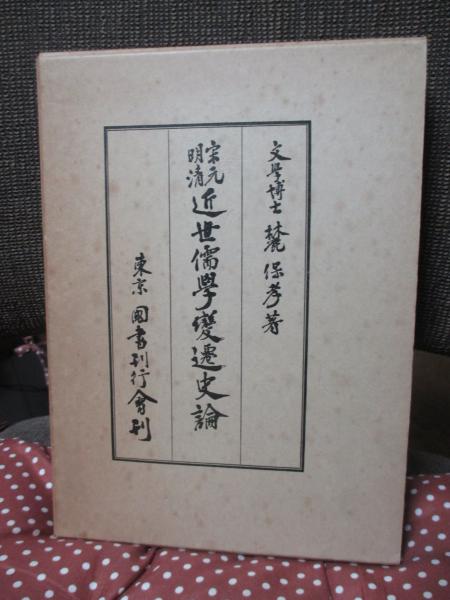 文學博士 麓 保孝著
宋元明清 近世儒學變遷史論
東京 國書刊行會刊